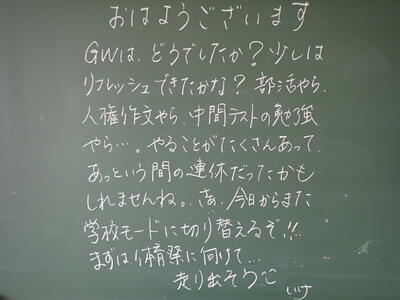 おはようございます
GWは、どうでしたか？少しは
リフレッシュできたかな？部活やら、
人権作文やら、中間テストの勉強
やら…。やることがたくさんあって、
あっという間の連休だったかも
しれませんね。さあ、今日からまた
学校モードに切り替えるぞ!!
まずは体育祭に向けて…
走り出そう